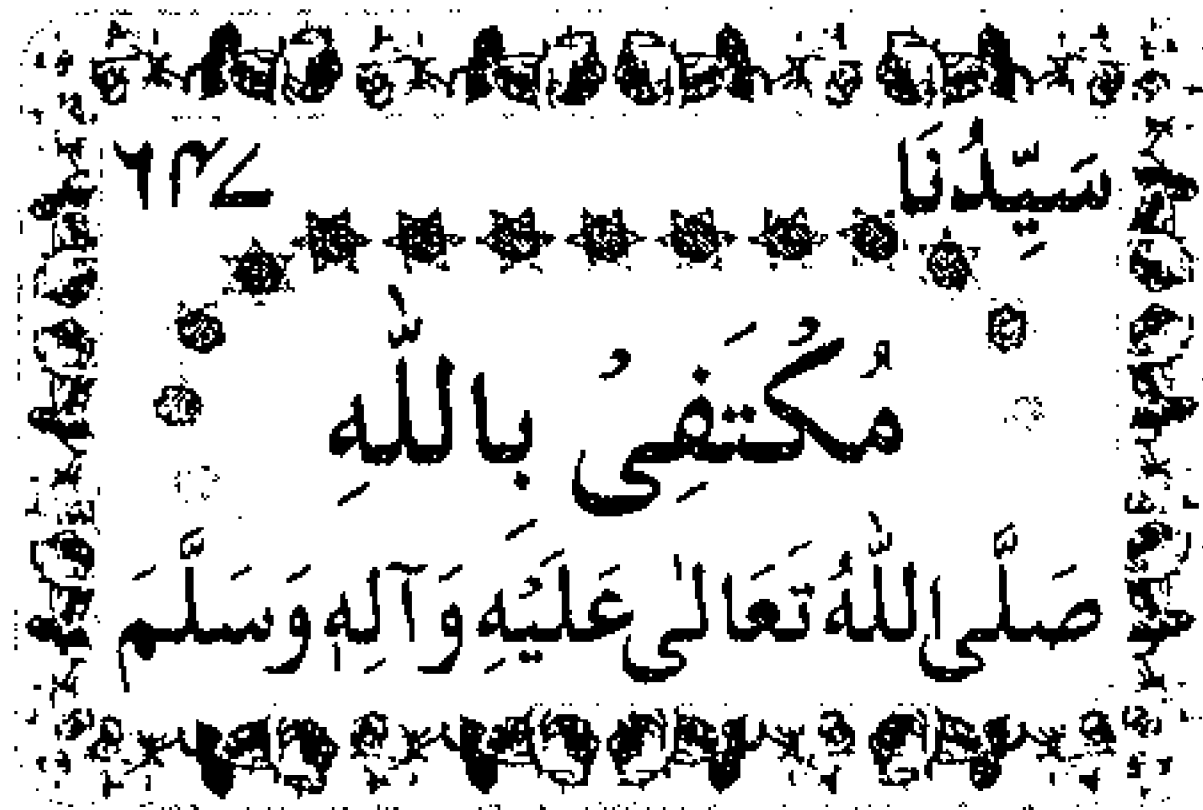 سَيِّدُنَا ۶۳۷
مُكْتَفِىْ بَاللّٰهِ
صَلَّى اللّٰهُ تَعَالٰى عَلَيْهِ وَآلِهٖ وَسَلَّمَ